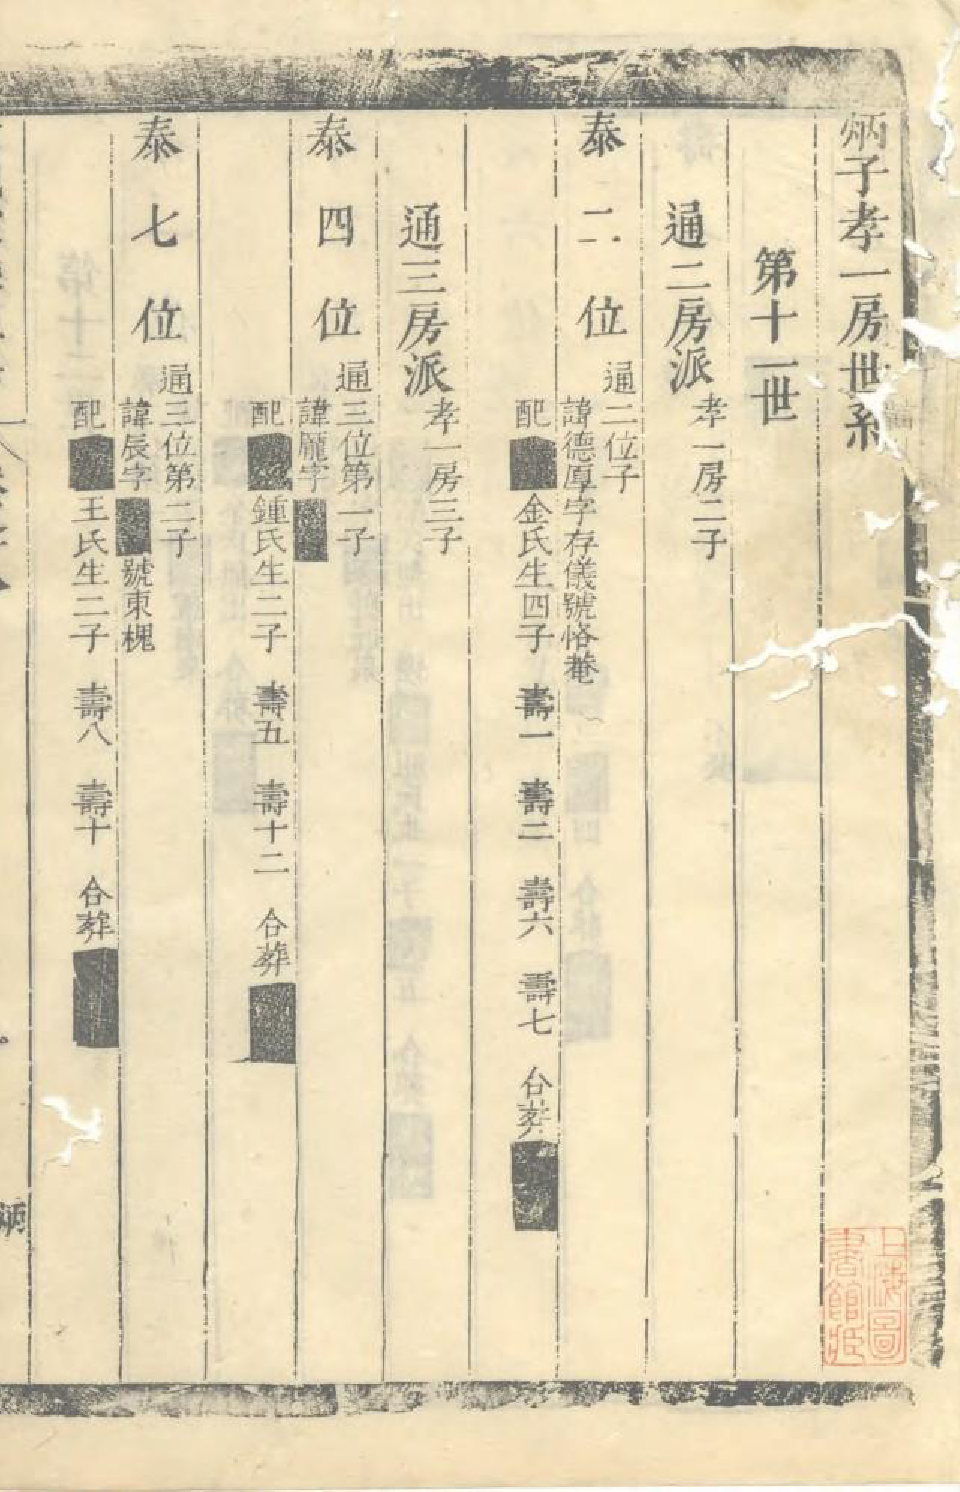 炳子孝一房世系
第十一世
通二房派
孝一房二子
泰二位
通二位子
諱德厚字存儀號恪菴
配■金氏生四子 壽一 壽二 壽六 壽七 合葬■
通三房派
孝一房三子
泰四位
通三位第一子
諱龐字■
配■鍾氏生二子 壽五 壽十二 合葬■
泰七位
通三位第二子
諱辰字■號東槐
配■王氏生二子 壽八 壽十 合葬■
炳
上海圖
書館藏